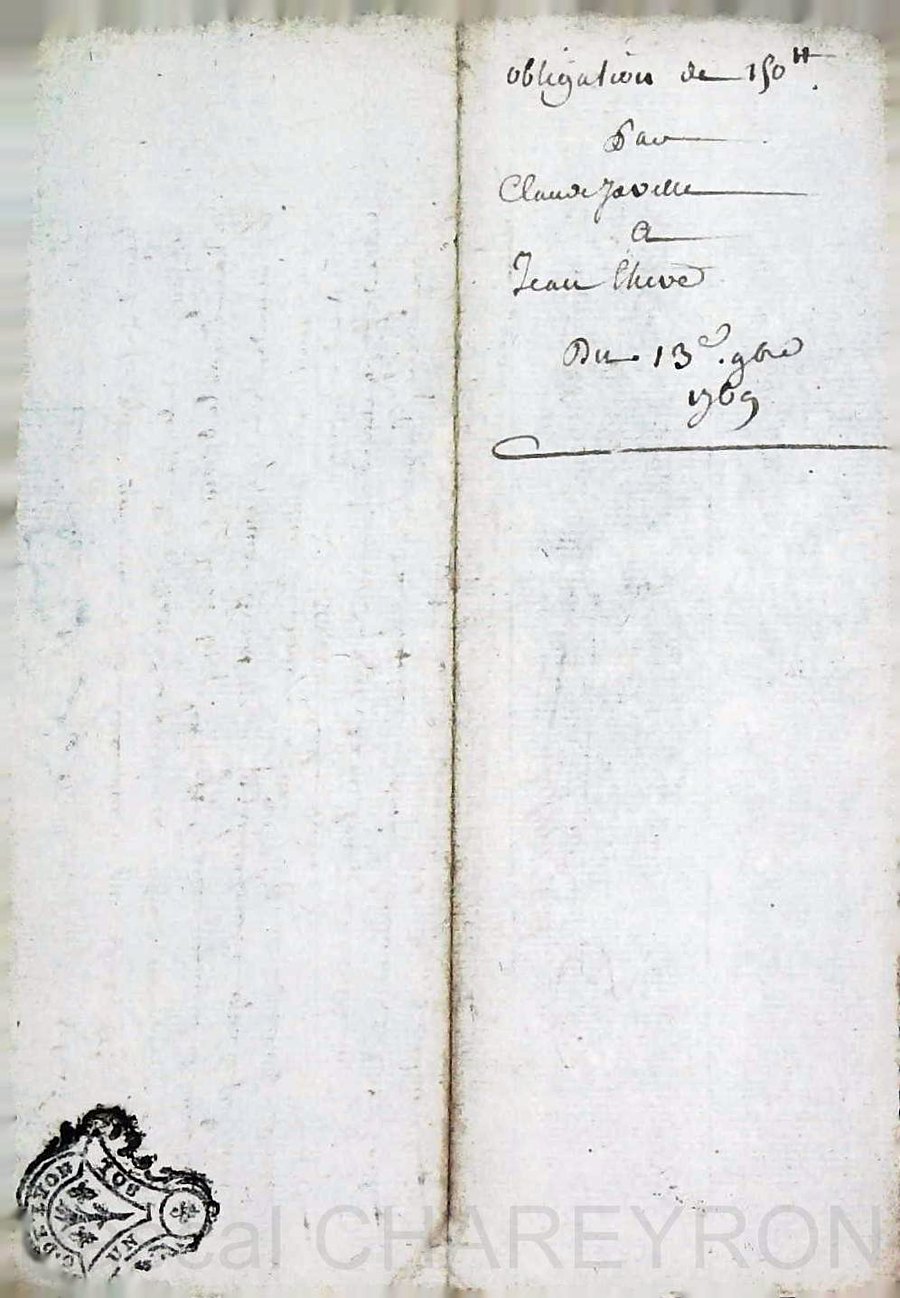 obligation de 150ᵗᵗ.
Par
Claude Javelle
A
Jean Chevé
Du 13ᵉ. 9bre
1769
G. DE LYON
SOL
cal CHAREYRON